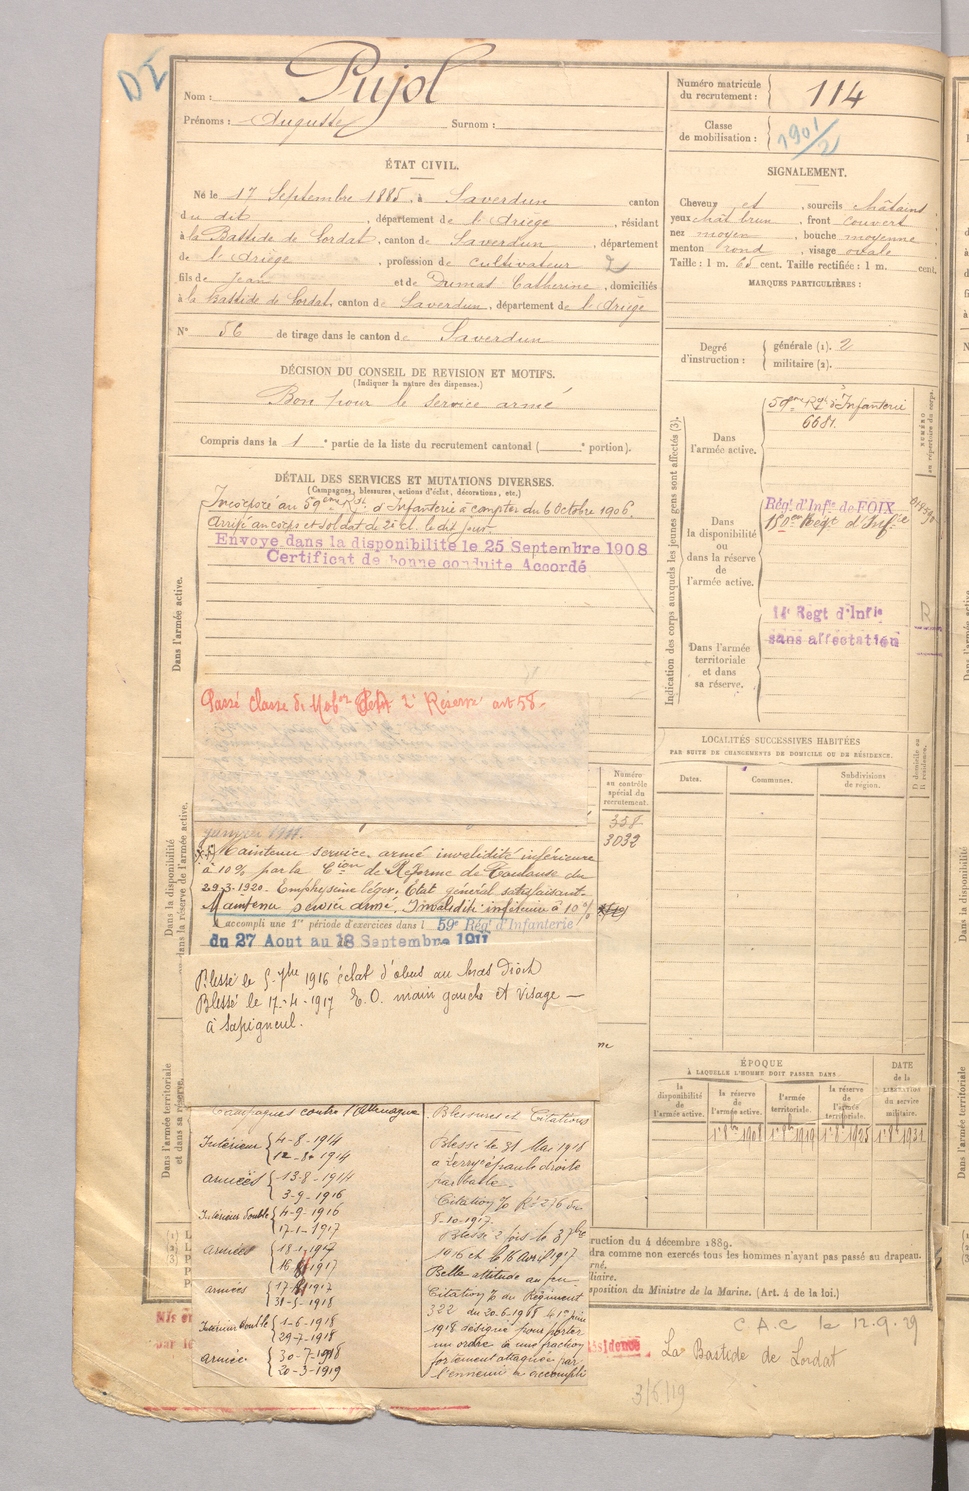 DI
Nom : Pujol
Prénoms : Auguste Surnom :
Numéro matricule du recrutement : 114
Classe de mobilisation : 1901/2
ÉTAT CIVIL.
Né le 17 Septembre 1885, à Saverdun canton
du dit, département de l'Ariège, résidant
à la Bastide de Lordat, canton de Saverdun, département
de l'Ariège, profession de cultivateur
fils de Jean et de Dumas Catherine, domiciliés
à la Bastide de Lordat, canton de Saverdun, département de l'Ariège
N° 56 de tirage dans le canton de Saverdun
SIGNALEMENT.
Cheveux et, sourcils châtains
yeux chât brun, front couvert
nez moyen, bouche moyenne
menton rond, visage ovale
Taille : 1 m. 65 cent. Taille rectifiée : 1 m. cent.
MARQUES PARTICULIÈRES :
Degré d'instruction : générale (1). 2
militaire (2).
DÉCISION DU CONSEIL DE REVISION ET MOTIFS.
(Indiquer la nature des dispenses.)
Bon pour le service armé
Compris dans la 1 e partie de la liste du recrutement cantonal ( e portion).
DÉTAIL DES SERVICES ET MUTATIONS DIVERSES.
(Campagnes, blessures, actions d'éclat, décorations, etc.)
Incorporé au 59eme Rgt d'Infanterie à compter du 6 Octobre 1906.
Arrivé au corps et soldat de 2e cl. le dit jour.
Envoyé dans la disponibilité le 25 Septembre 1908
Certificat de bonne conduite Accordé
Dans l'armée active.
Passé classe de Mobon 2e Réserve art 58.
janvier
Maintenu service armé invalidité inférieure
à 10% par la Cion de Réforme de Toulouse du
29-3-1920. Emphysème léger, État général satisfaisant
Maintenu service armé. Invalidité inférieure à 10%
accompli une 1re période d'exercices dans l 59e Rég' d'Infanterie
du 27 Aout au 18 Septembre 1911
Dans la disponibilité
dans la réserve de l'armée active.
Numéro au contrôle spécial du recrutement.
358
3032
Blessé le 5 7bre 1916 éclat d'obus au bras droit
Blessé le 17-4-1917 E.O. main gauche et visage —
à Sapigneul.
Dans l'armée territoriale
et dans sa réserve.
Campagnes contre l'Allemagne
Intérieur 4-8-1914
12-8-1914
armées 13-8-1914
3-9-1916
Intérieur double 4-9-1916
17-1-1917
armées 18-1-1917
16 1917
armées 17 1917
31-5-1918
Intérieur double 1-6-1918
29-7-1918
armée 30-7-1918
20-3-1919
Blessures et Citations
Blessé le 31 Mai 1918
à épaule droite
par balle.
Citation R. 276 du
8-10-1917.
Blessé 2 fois le 3 7bre
1916 et le 16 Avril 1917.
Belle attitude au feu
Citation du Régiment
322 du 20-6-1918
1918 désigné pour porter
un ordre à une fraction
fortement attaquée par
l'ennemi a accompli
Indication des corps auxquels les jeunes gens sont affectés (3).
Dans l'armée active.
59eme Rgt d'Infanterie
6681.
Dans la disponibilité ou dans la réserve de l'armée active.
Régt d'Infie de FOIX
Régt d'Infie
Dans l'armée territoriale et dans sa réserve.
14e Regt d'Infie
sans affectation
NUMÉRO au répertoire du corps.
R
LOCALITÉS SUCCESSIVES HABITÉES
PAR SUITE DE CHANGEMENTS DE DOMICILE OU DE RÉSIDENCE.
Dates. Communes. Subdivisions de région. D domicile ou R résidence.
ÉPOQUE
À LAQUELLE L'HOMME DOIT PASSER DANS
DATE de la LIBÉRATION du service militaire.
la disponibilité de l'armée active. la réserve de l'armée active. l'armée territoriale. la réserve de l'armée territoriale.
1 8bre 1908 1 8bre 1919 1 8 1925 1 8 1931
ruction du 4 décembre 1889.
dra comme non exercés tous les hommes n'ayant pas passé au drapeau.
rné.
iliaire.
sposition du Ministre de la Marine. (Art. 4 de la loi.)
C.A.C le 12-9-29
résidence La Bastide de Lordat